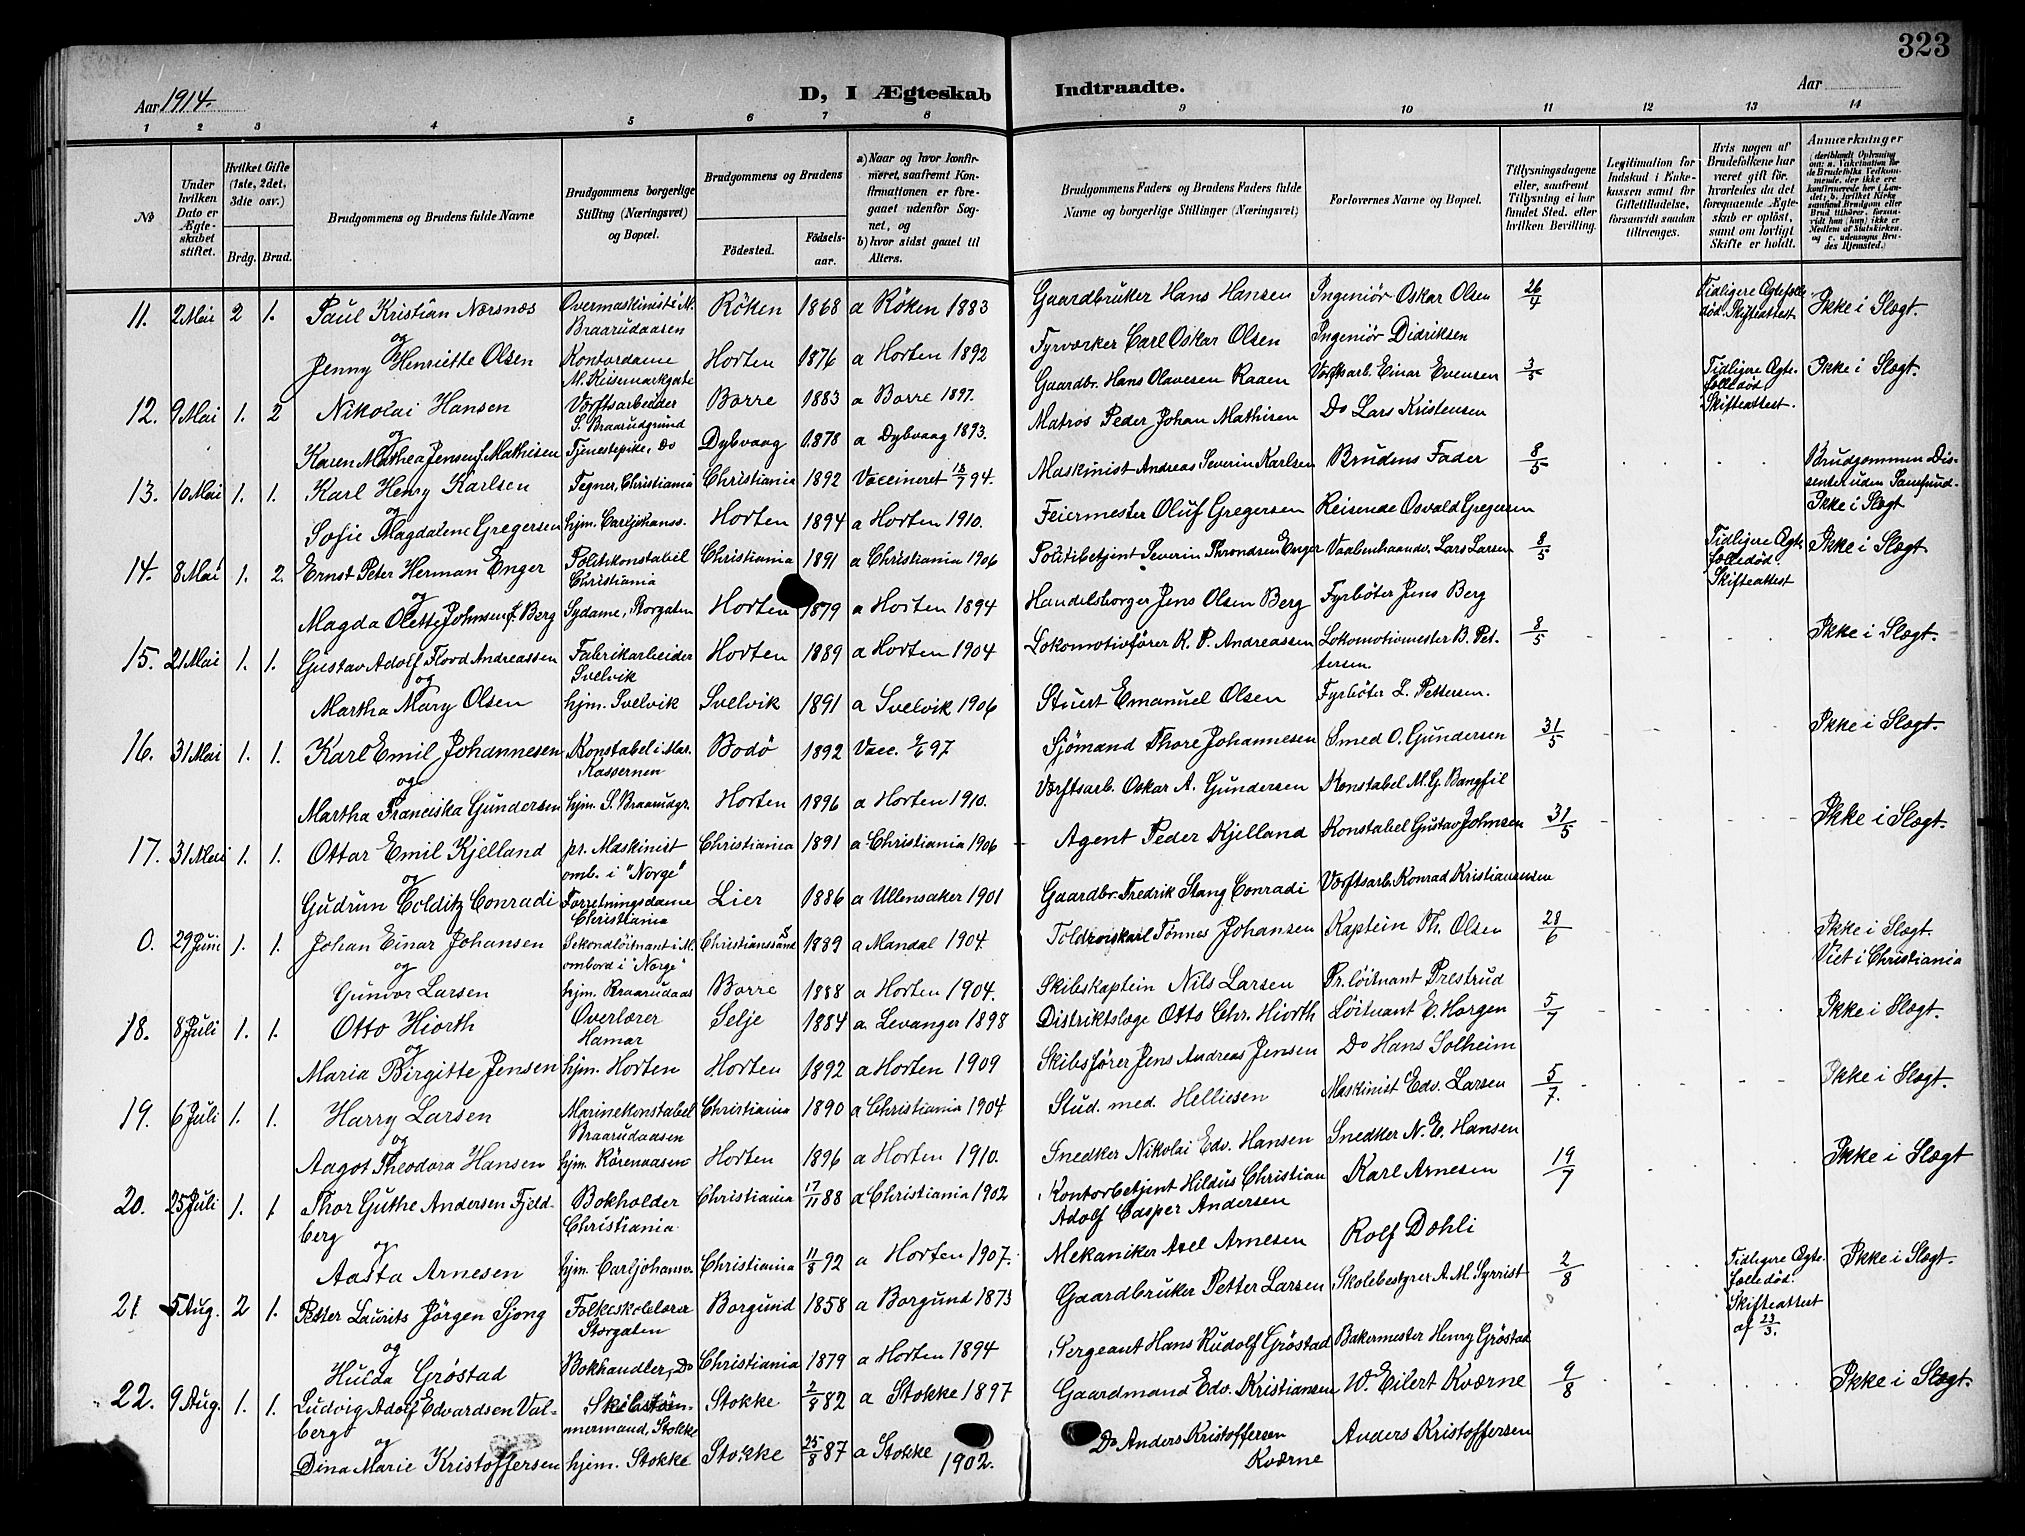 323
Aar 1914.
D, I Ægteskab Indtraadte.
Aar
1 2 3 4 5 6 7 8 9 10 11 12 13 14
No
Under hvilken Dato er Ægteskabet stiftet.
Hvilket Gifte (1ste, 2det, 3die osv.)
Brdg. Brud.
Brudgommens og Brudens fulde Navne
Brudgommens borgerlige Stilling (Næringsvei) og Bopæl.
Brudgommens og Brudens
Fødested. Fødselsaar.
a) Naar og hvor konfirmeret, saafremt Konfirmationen er foregaaet udenfor Sognet, og
b) hvor sidst gaaet til Alters.
Brudgommens Faders og Brudens Faders fulde Navne og borgerlige Stillinger (Næringsvei)
Forlovernes Navne og Bopæl.
Tillysningsdagene eller, saafremt Tillysning ei har fundet Sted, efter hvilken Bevilling.
Legitimation for Indskud i Enkekassen samt for Giftetilladelse, forsaavidt saadan tiltrænges.
Hvis nogen af Brudefolkene har været gift før, hvorledes da det foregaaende Ægteskab er opløst, samt om lovligt Skifte er holdt.
Anmærkninger
11. 2 Mai 2 1. Paul Kristian Nærsnæs Overmaskinist i M. Braarudaasen Röken 1868 a Röken 1883 Gaardbruker Hans Hansen Ingeniör Oskar Olsen 26/4 Tidligere Ægtefolle död. Skifteattest Ikke i Slægt.
og
Jenny Henriette Olsen Kontordame Horten 1876 a Horten 1892 Fyrværker Carl Oskar Olsen Ingeniör Didriksen
12. 9 Mai 1. 2 Nikolai Hansen Værftsarbeider S. Braarudgrund Borre 1883 a Borre 1897. Gaardbr. Hans Olavesen Raaen Værftsarb. Einar Evensen 3/5 Tidligere Ægtefolle död Skifteattest. Ikke i Slægt.
og
Karen Mathea Jensen f. Mathisen Tjenestepike, do Dybvaag 1878 a Dybvaag 1893. Matros Peder Johan Mathisen Do Lars Kristensen
13. 10 Mai 1. 1. Karl Henry Karlsen Tegner, Christiania Christiania 1892 Vaccineret 18/7 94. Maskinist Andreas Severin Karlsen Brudens Fader 8/5 Brudgommen Dissenter uden Samfund. Ikke i Slægt
og
Sofie Magdalene Gregersen hjm. Carljohanss. Horten 1894 a Horten 1910. Feiermester Oluf Gregersen Reisende Osvald Gregersen
14. 8 Mai 1. 2. Ernst Peter Herman Enger Politikonstabel Christiania Christiania 1891 a Christiania 1906 Politibetjent Severin Throndsen Enger Vaabenhaandv. Lars Larsen 8/5 Tidligere Ægtefolle död. Skifteattest Ikke i Slægt
og
Magda Olette Johnsen f. Berg Sydame, Storgaten Horten 1879 a Horten 1894 Handelsborger Jens Olsen Berg Fyrböter Jens Berg
15. 21 Mai 1. 1. Gustav Adolf Flood Andreassen Fabrikarbeider Svelvik Horten 1889 a Horten 1904 Lokomotivfører K. P. Andreassen Lokomotivmester B. Pettersen 8/5 Ikke i Slægt.
og
Martha Mary Olsen hjm. Svelvik Svelvik 1891 a Svelvik 1906 Stuert Emanuel Olsen Fyrböter L. Pettersen.
16. 31 Mai 1. 1. Karl Emil Johannesen Konstabel i Mar. Kassernen Bodö 1892 Vacc. 9/6 97 Sjömand Thore Johannesen Smed O. Gundersen 31/5 Ikke i Slægt.
og
Martha Franciska Gundersen hjm. S. Braarudgr. Horten 1896 a Horten 1910. Værftsarb. Oskar A. Gundersen Konstabel M. G. Bangfil
17. 31 Mai 1. 1. Ottar Emil Kjelland pr. Maskinist omb. i "Norge" Christiania 1891 a Christiania 1906 Agent Peder Kjelland Konstabel Gustav Johnsen 31/5 Ikke i Slægt.
og
Gudrun Colditz Conradi Forretningsdame Christiania Lier 1886 a Ullensaker 1901 Gaardbr. Fredrik Stang Conradi Værftsarb. Konrad Kristiansen
0. 29 Juni 1. 1. Johan Einar Johansen Sekondlöitnant i M. ombord i "Norge" Christianssand S 1889 a Mandal 1904. Tönnes Johansen Kaptein Th. Olsen 28/6 Ikke i Slægt. Viet i Christiania
og
Gunvor Larsen hjm. Braarudaas Borre 1888 a Horten 1904. Skibskaptein Nils Larsen Pr. löitnant Prestrud
18. 8 Juli 1. 1. Otto Hiorth Overlærer Hamar Selje 1884 a. Levanger 1898 Distriktslæge Otto Chr. Hiorth Löitnant E. Horgen 5/7 Ikke i Slægt.
og
Maria Birgitte Jensen hjm. Horten Horten 1892 a Horten 1909 Skibsfører Jens Andreas Jensen Do Hans Solheim
19. 6 Juli 1. 1. Harry Larsen Marinekonstabel Braarudaasen Christiania 1890 a Christiania 1904 Stud. med. Helliesen Maskinist Edv. Larsen 5/7. Ikke i Slægt.
og
Aagot Theodora Hansen hjm. Rörenaasen Horten 1896 a Horten 1910. Snedker Nikolai Edv. Hansen Snedker N. E. Hansen
20. 25 Juli 1. 1 Thor Guthe Andersen Fjeldberg Bokholder Christiania Christiania 17/11 88 a Christiania 1902 Kontorbetjent Hildus Christian Adolf Casper Andersen Karl Arnesen 19/7 Ikke i Slægt
og
Aasta Arnesen hjm. Carljohansv. Christiania 11/8 92 a Horten 1907. Mekaniker Axel Arnesen Rolf Dæhli
21 5 Aug. 2 1. Petter Laurits Jörgen Sjong Folkeskolelærer Storgaten Borgund 1858 a Borgund 1873 Gaardbruker Petter Larsen Skolebestyrer A. M. Syrrist 2/8 Tidligere Ægtefolle död. Skifteattest af 23/3. Ikke i Slægt.
og
Hulda Gröstad Bokhandler, Do Christiania 1879 a Horten 1894 Sergeant Hans Rudolf Gröstad Bakermester Henry Gröstad
22. 9 Aug. 1. 1. Ludvig Adolf Edvardsen Valberg Skibstömmermand, Stokke Stokke 2/8 82 a Stokke 1897 Gaardmand Edv. Kristiansen W. Eilert Kværne 9/8 Ikke i Slægt.
og
Dina Marie Kristoffersen hjem. Stokke Stokke 25/8 87 a Stokke 1902. Do Anders Kristoffersen Kværne Anders Kristoffersen